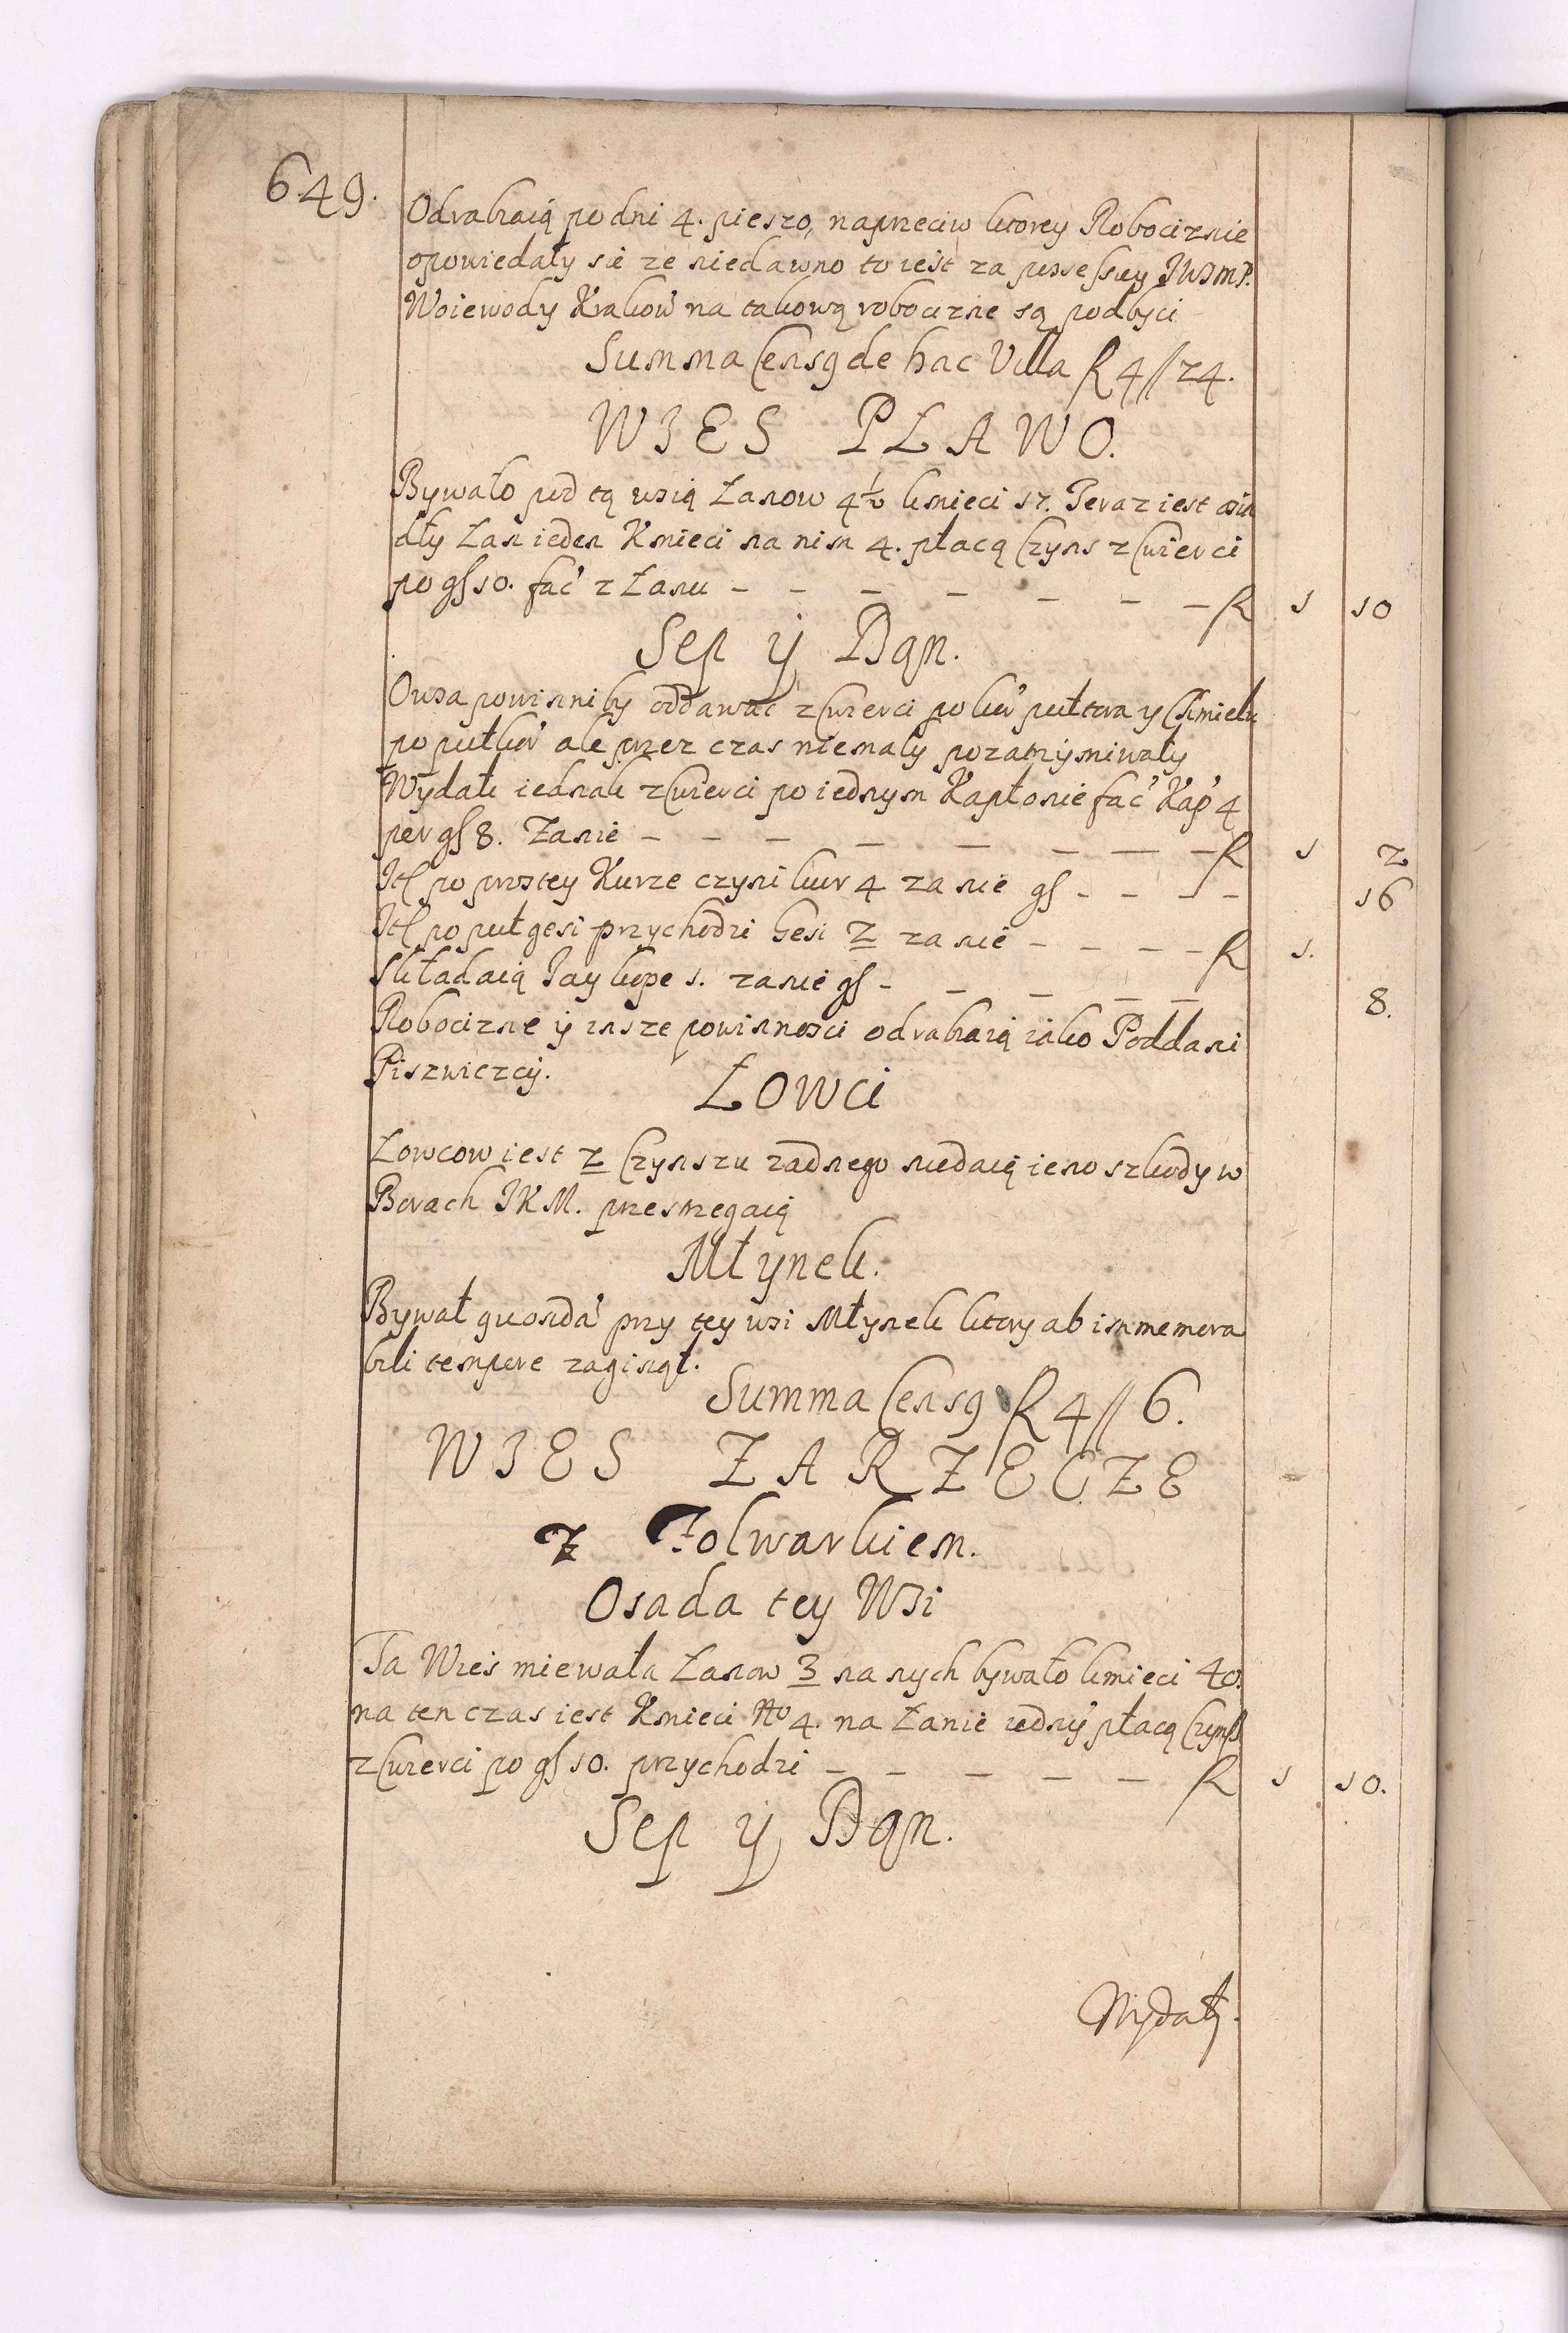 649.
Odrabaią po dni 4. pieszo, naprzeciw ktorey Robociznie
opowiedały się ze niedawno to iest za possessiey JWJmP.
Woiewody Krakow̕ na takową robociznę są podbyci
Summa Censq de hac Villa R 4 // 24.
WIES PŁAWO.
Bywało pod tą wsią Łanow 4½ kmieci 17. Teraz iest osia
dły Łan ieden Kmieci na nim 4. płacą Czyns z Cwierci
po gſ 10. fac̕ z Łanu - - - - - - - R 1 10
Sep ÿ Dan.
Owsa powinniby oddawać z Cwierci po kor̕ pułtora y Chmielu
po pułkor̕ ale przez czas niemały pozatrzymiwały
Wydali iednak z Cwierci po iednym Kapłonie fac̕ Kap̕ 4
per gſ 8. Zanie - - - - - - - - R 1 2
Itſ po prostey Kurze czyni kur 4 za nie gſ - - - - 16
Itſ po puł gęsi przychodzi Gęsi 2 za nie - - - - R 1.
Składaią Jay kopę 1. za nie gſ - - - - - 8.
Robociznę ÿ insze powinnosci odrabiaią iako Poddani
Piszniczcÿ.
ŁOWCI
Łowcow iest 2 Czynszu zadnego niedaią ieno szkody w
Borach JKM. przestrzegaią
Młynek.
Bywał quonda̕ przy tey wsi Młynek ktory ab immemora
bili tempore zaginął.
Summa Censq R 4 // 6.
WIES ZARZECZE
Z Folwarkiem.
Osada tey Wsi
Ta Wieś miewała Łanow 3 na nych bywało kmieci 40.
na ten czas iest Kmieci No 4. na Łanie iednÿ płacą Czynß
z Cwierci po gſ 10. przychodzi - - - - - R 1 10.
Sep ÿ Dan.
Wydały.